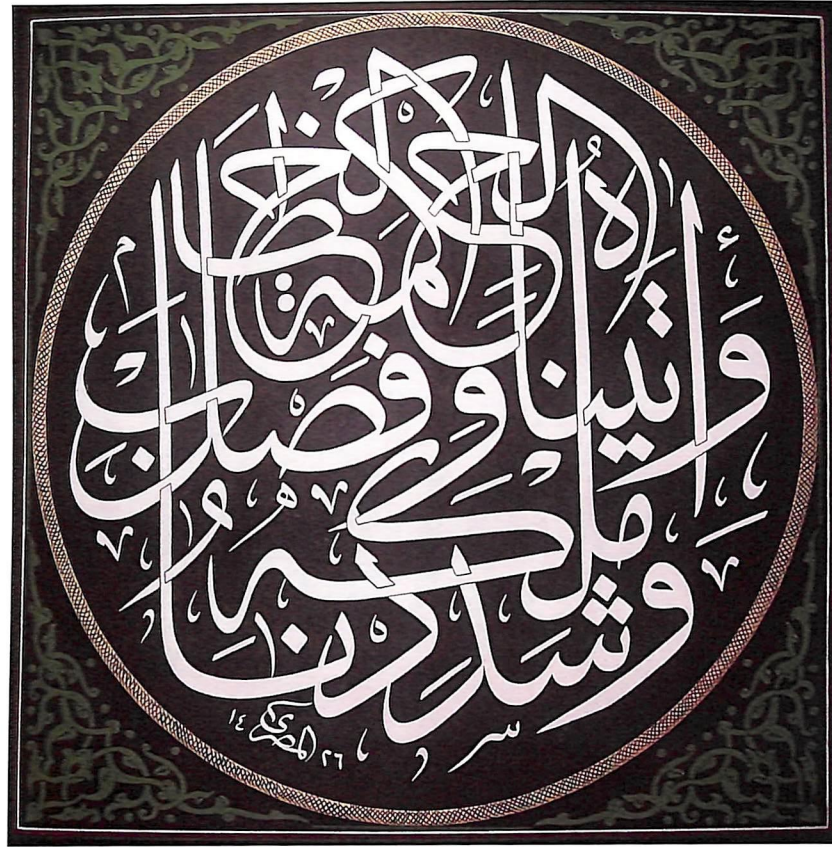 وشددنا ملكه وآتيناه الحكمة وفصل الخطاب
المصري ١٤٢٦